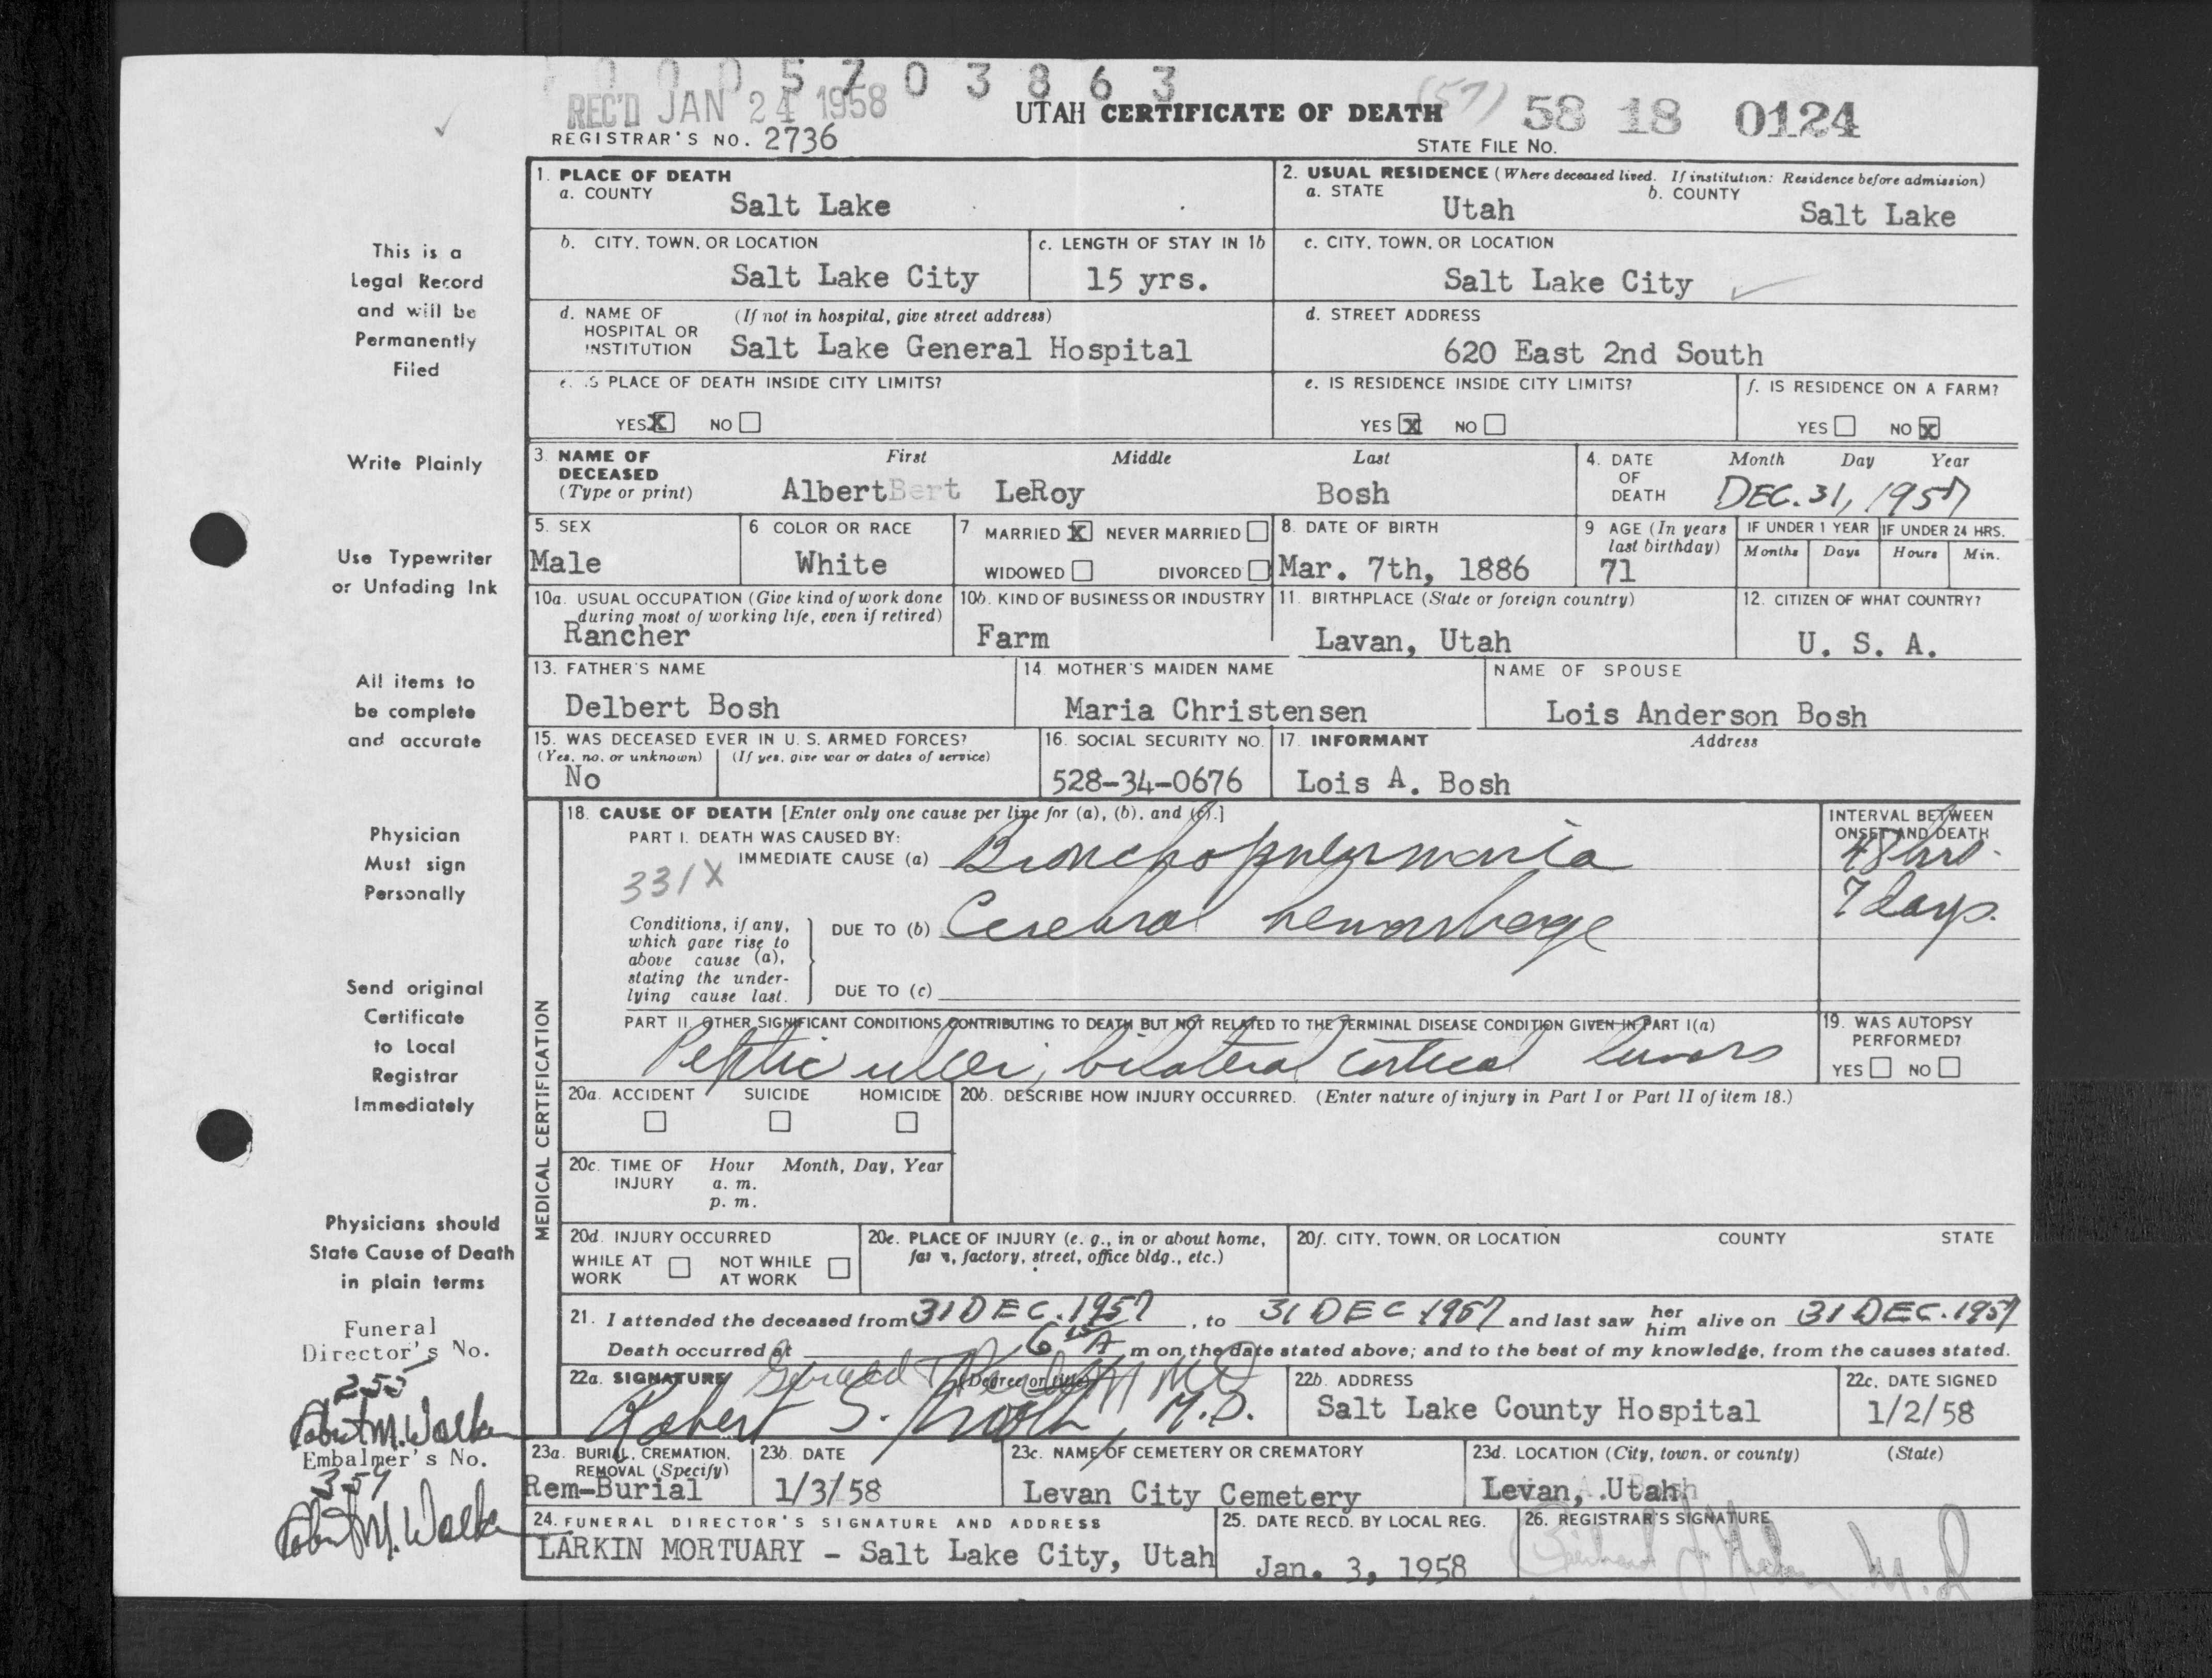 0005703863
REC'D JAN 24 1958
UTAH CERTIFICATE OF DEATH (57) 58 18 0124
REGISTRAR'S NO. 2736
STATE FILE No.
This is a
Legal Record
and will be
Permanently
Filed
Write Plainly
Use Typewriter
or Unfading Ink
All items to
be complete
and accurate
Physician
Must sign
Personally
Send original
Certificate
to Local
Registrar
Immediately
Physicians should
State Cause of Death
in plain terms
Funeral
Director's No.
255
Robert M. Walker
Embalmer's No.
359
Robert M. Walker
1. PLACE OF DEATH
a. COUNTY Salt Lake
2. USUAL RESIDENCE (Where deceased lived. If institution: Residence before admission)
a. STATE Utah b. COUNTY Salt Lake
b. CITY, TOWN, OR LOCATION Salt Lake City
c. LENGTH OF STAY IN 1b 15 yrs.
c. CITY, TOWN, OR LOCATION Salt Lake City
d. NAME OF HOSPITAL OR INSTITUTION (If not in hospital, give street address) Salt Lake General Hospital
d. STREET ADDRESS 620 East 2nd South
e. IS PLACE OF DEATH INSIDE CITY LIMITS?
YES X NO
e. IS RESIDENCE INSIDE CITY LIMITS?
YES X NO
f. IS RESIDENCE ON A FARM?
YES NO X
3. NAME OF DECEASED (Type or print) First Middle Last
Albert Bert LeRoy Bosh
4. DATE OF DEATH Month Day Year
DEC. 31, 1957
5. SEX Male
6 COLOR OR RACE White
7 MARRIED X NEVER MARRIED
WIDOWED DIVORCED
8. DATE OF BIRTH Mar. 7th, 1886
9 AGE (In years last birthday) 71
IF UNDER 1 YEAR Months Days
IF UNDER 24 HRS. Hours Min.
10a. USUAL OCCUPATION (Give kind of work done during most of working life, even if retired) Rancher
10b. KIND OF BUSINESS OR INDUSTRY Farm
11. BIRTHPLACE (State or foreign country) Lavan, Utah
12. CITIZEN OF WHAT COUNTRY? U. S. A.
13. FATHER'S NAME Delbert Bosh
14 MOTHER'S MAIDEN NAME Maria Christensen
NAME OF SPOUSE Lois Anderson Bosh
15. WAS DECEASED EVER IN U. S. ARMED FORCES?
(Yes, no, or unknown) (If yes, give war or dates of service)
No
16. SOCIAL SECURITY NO. 528-34-0676
17. INFORMANT Address
Lois A. Bosh
MEDICAL CERTIFICATION
18. CAUSE OF DEATH [Enter only one cause per line for (a), (b), and (c).]
INTERVAL BETWEEN ONSET AND DEATH
PART I. DEATH WAS CAUSED BY:
IMMEDIATE CAUSE (a) Bronchopneumonia 48 hrs.
331X
Conditions, if any, which gave rise to above cause (a), stating the underlying cause last.
DUE TO (b) Cerebral hemorrhage 7 days.
DUE TO (c)
PART II. OTHER SIGNIFICANT CONDITIONS CONTRIBUTING TO DEATH BUT NOT RELATED TO THE TERMINAL DISEASE CONDITION GIVEN IN PART I(a)
Peptic ulcer, bilateral cortical
19. WAS AUTOPSY PERFORMED?
YES NO
20a. ACCIDENT SUICIDE HOMICIDE
20b. DESCRIBE HOW INJURY OCCURRED. (Enter nature of injury in Part I or Part II of item 18.)
20c. TIME OF INJURY Hour Month, Day, Year
a. m.
p. m.
20d. INJURY OCCURRED
WHILE AT WORK NOT WHILE AT WORK
20e. PLACE OF INJURY (e. g., in or about home, farm, factory, street, office bldg., etc.)
20f. CITY, TOWN, OR LOCATION COUNTY STATE
21. I attended the deceased from 31 DEC. 1957, to 31 DEC 1957 and last saw her him alive on 31 DEC. 1957
Death occurred at 6 15 A m on the date stated above; and to the best of my knowledge, from the causes stated.
22a. SIGNATURE (Degree or title)
Robert S. M.D.
22b. ADDRESS Salt Lake County Hospital
22c. DATE SIGNED 1/2/58
23a. BURIAL, CREMATION, REMOVAL (Specify) Rem-Burial
23b. DATE 1/3/58
23c. NAME OF CEMETERY OR CREMATORY Levan City Cemetery
23d. LOCATION (City, town, or county) (State)
Levan, Utah
24. FUNERAL DIRECTOR'S SIGNATURE AND ADDRESS
LARKIN MORTUARY - Salt Lake City, Utah
25. DATE RECD. BY LOCAL REG. Jan. 3, 1958
26. REGISTRAR'S SIGNATURE
M.D.